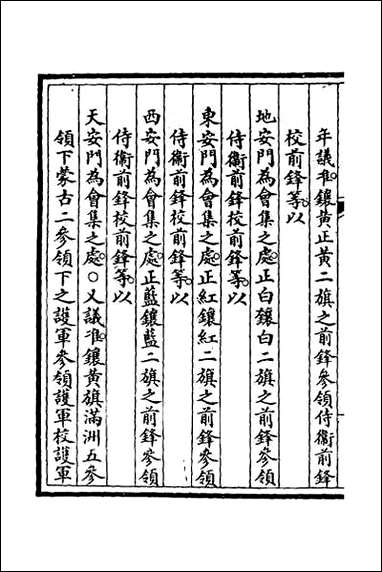 年議准鑲黃正黃二旗之前鋒參領侍衞前鋒
校前鋒等以
地安門為會集之處正白鑲白二旗之前鋒參領
侍衞前鋒校前鋒等以
東安門為會集之處正紅鑲紅二旗之前鋒參領
侍衞前鋒校前鋒等以
西安門為會集之處正藍鑲藍二旗之前鋒參領
侍衞前鋒校前鋒等以
天安門為會集之處○又議准鑲黃旗滿洲五參
領下蒙古二參領下之護軍參領護軍校護軍